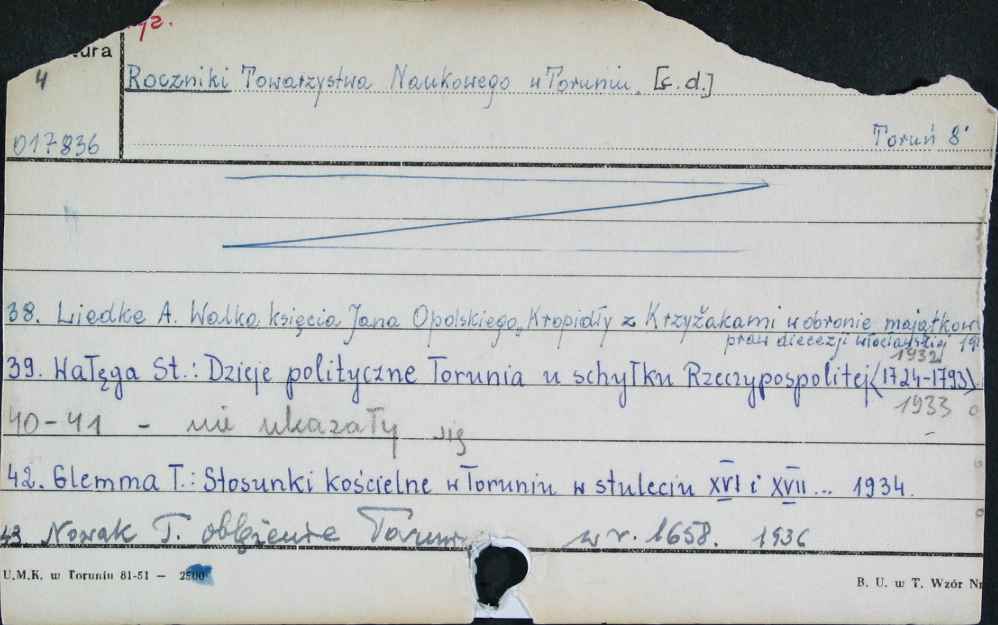 yz.
tura
4
Roczniki Towarzystwa Naukowego w Toruniu. [c.d.]
017836
Toruń 8°
38. Liedke A. Walka księcia Jana Opolskiego „Kropidły z Krzyżakami w obronie majątkow
praw diecezji włocławskiej 19
1932
39. Wałęga St.: Dzieje polityczne Torunia u schyłku Rzeczypospolitej (1724-1793)
1933
40-41 - nie ukazały się
42. Glemma T.: Stosunki kościelne w Toruniu w stuleciu XVI i XVII... 1934.
43 Nowak T. Oblężenie Torunia w r. 1658. 1936
U.M.K. w Toruniu 81-51 — 2500
B. U. w T. Wzór Nr